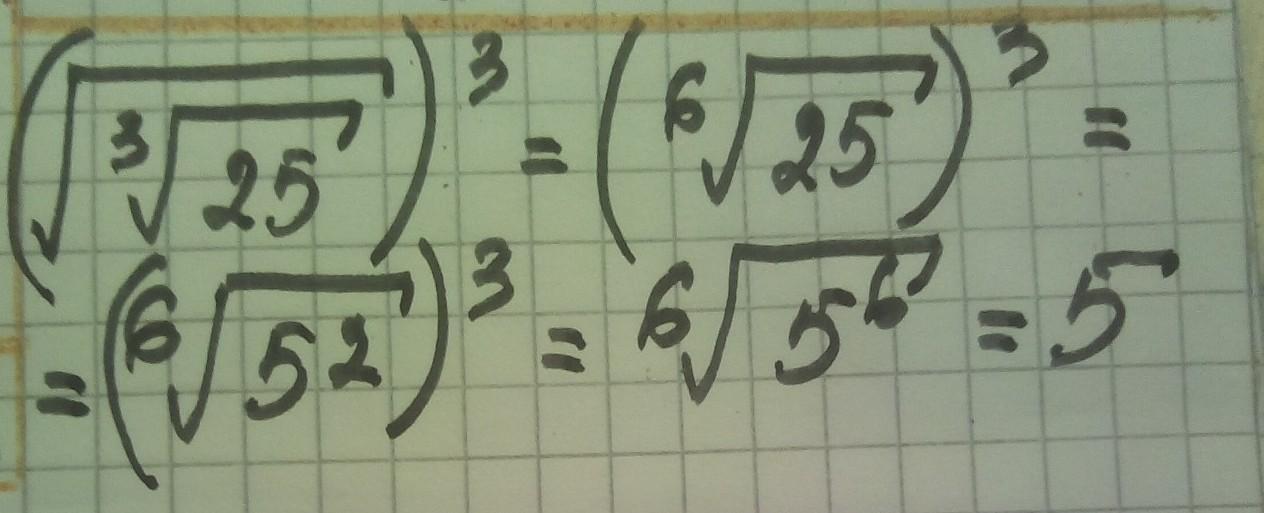 (√(∛25))³ = (⁶√25)³ =
= (⁶√5²)³ = ⁶√5⁶ = 5